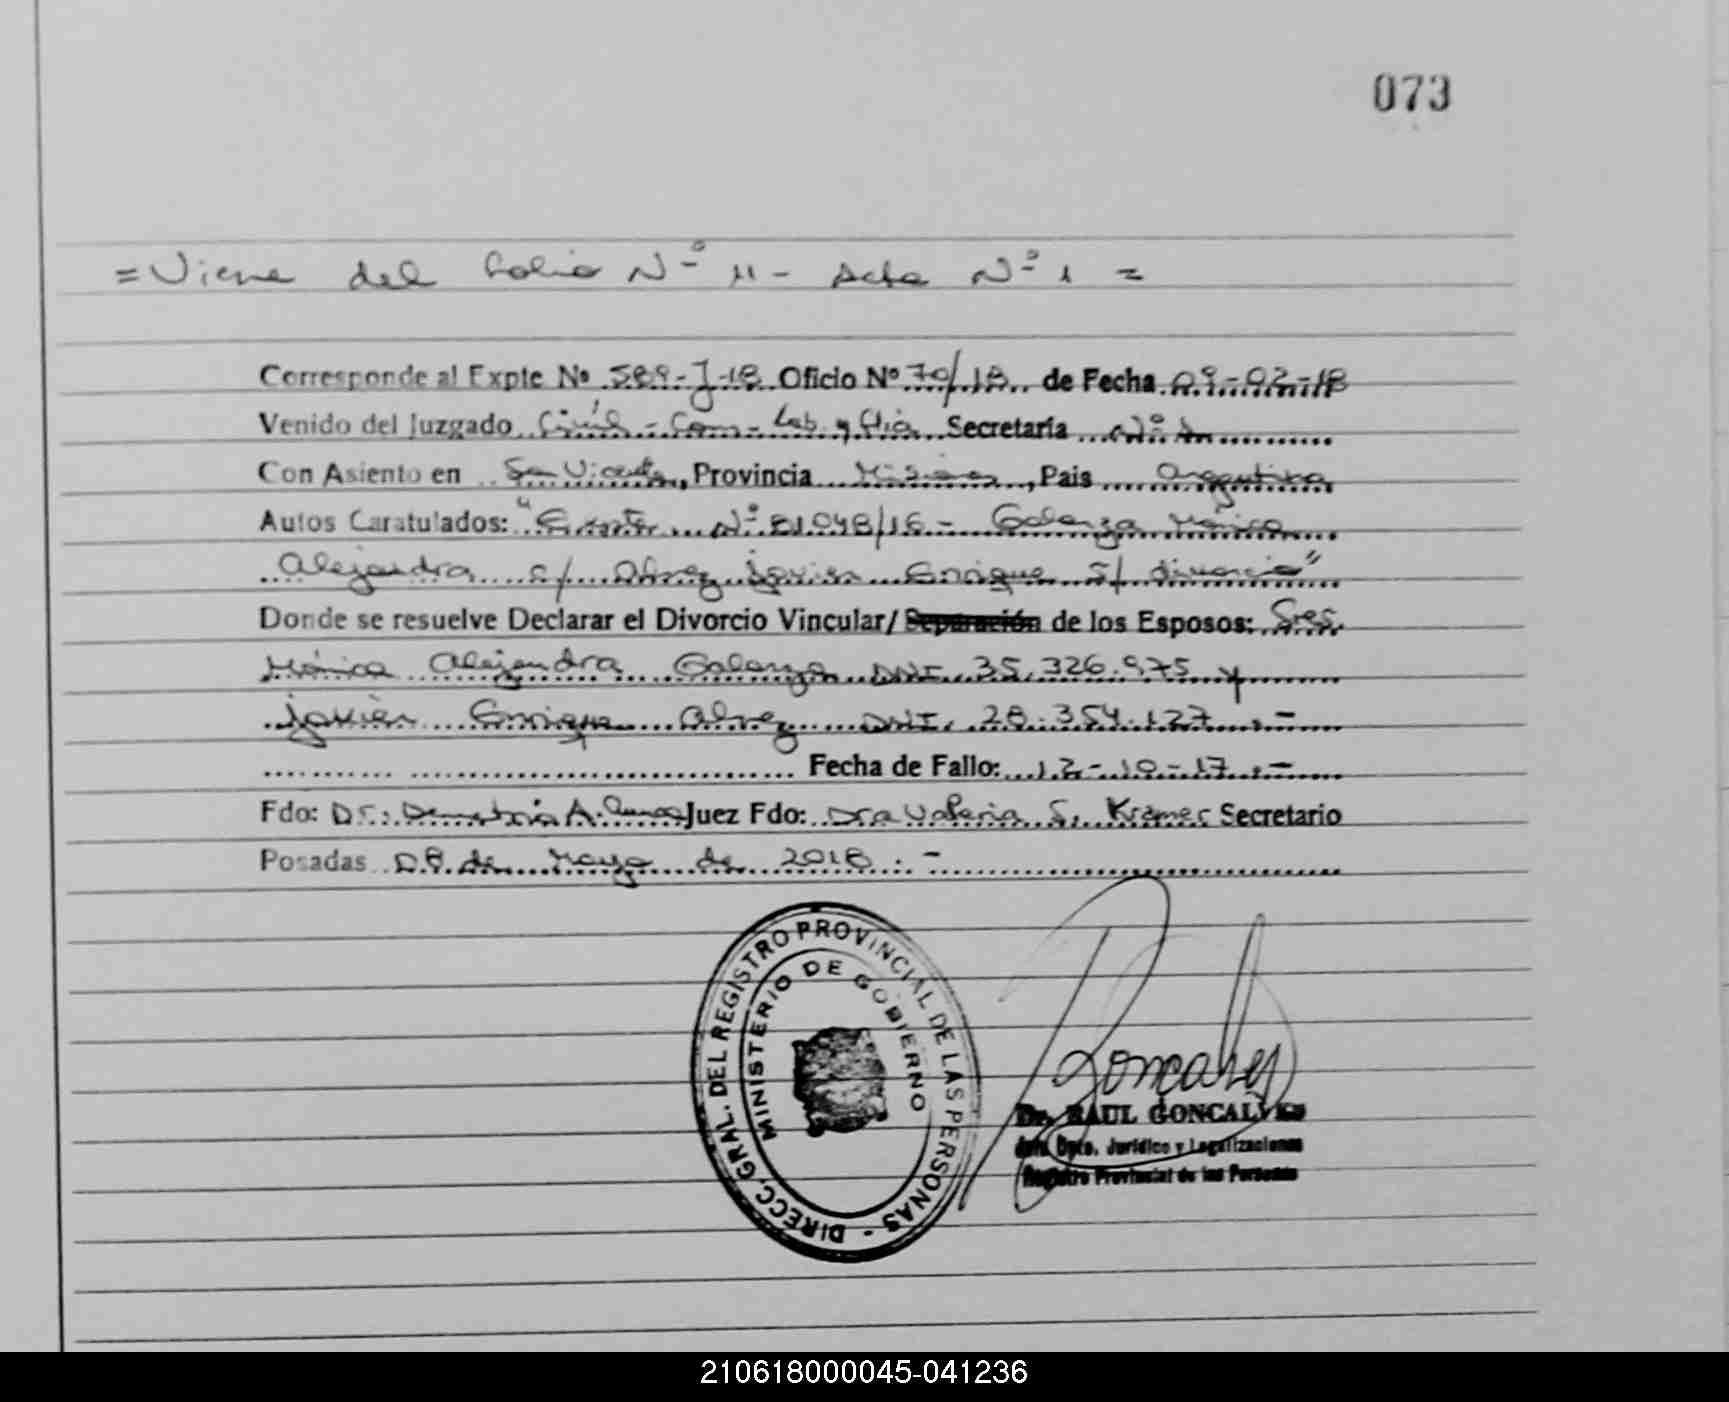 073
= Viene del folio Nº 11 - Acta Nº 1 =
Corresponde al Expte Nº 589-J-18 Oficio Nº 70/18 de Fecha 09-02-18
Venido del Juzgado Civil - Com - Lab. y flia Secretaría Nº 1
Con Asiento en San Vicente, Provincia Misiones, Pais Argentina
Autos Caratulados: "Expte Nº 81048/16 - Galarza Mónica
Alejandra c/ Alvez Javier Enrique s/ divorcio"
Donde se resuelve Declarar el Divorcio Vincular/Separación de los Esposos: Sres
Mónica Alejandra Galarza DNI. 35.326.975 y
Javier Enrique Alvez DNI. 28.354.127.-
Fecha de Fallo: 12-10-17.-
Fdo: Dr. A. Juez Fdo: Dra Valeria S. Kramer Secretario
Posadas 08 de Mayo de 2018.-
DIRECC. GRAL. DEL REGISTRO PROVINCIAL DE LAS PERSONAS -
MINISTERIO DE GOBIERNO
Goncalves
Dr. RAUL GONCALVES
Jefe Dpto. Jurídico y Legalizaciones
Registro Provincial de las Personas
210618000045-041236